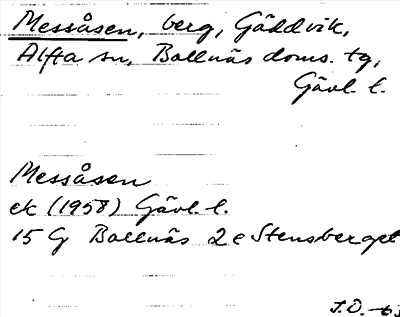 Messåsen, berg, Gäddvik,
Alfta sn, Bollnäs doms. tg,
Gävl. l.
Messåsen
ek (1958) Gävl. l.
15 G Bollnäs 2 c Stensberget
J.O. -63